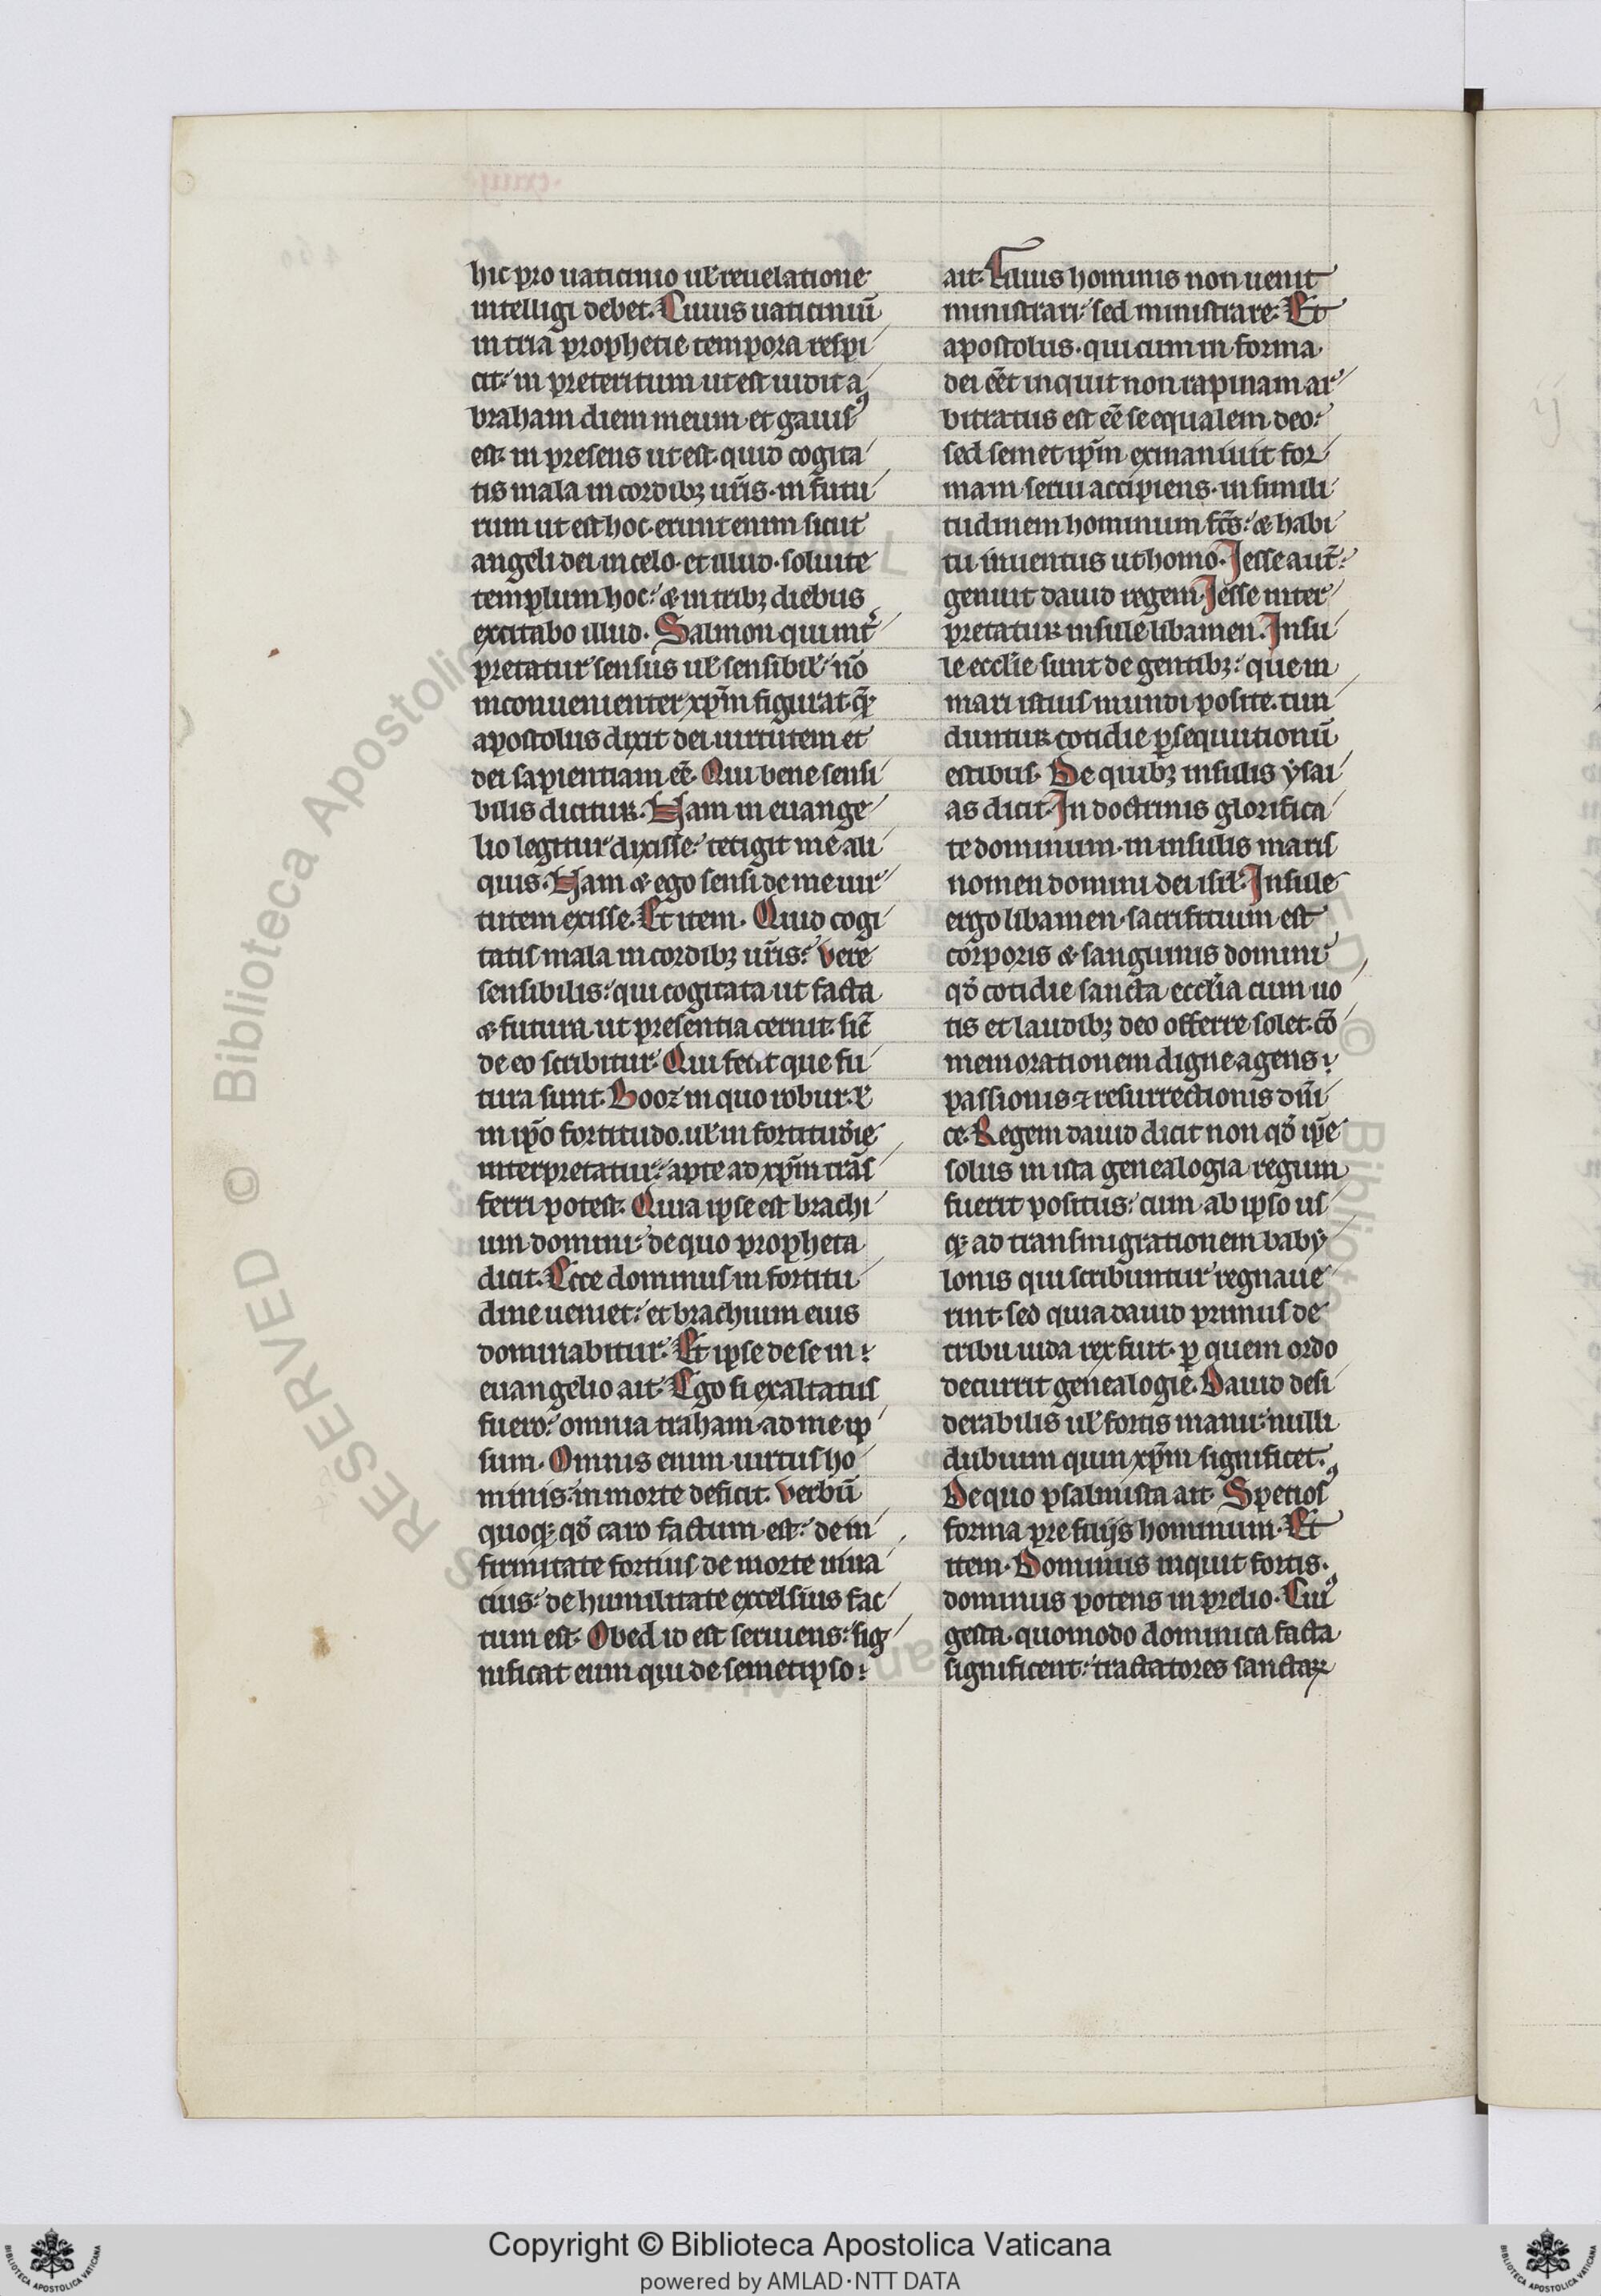 hic pro uaticinio ul̄ reuelatione
intelligi debet. Cuius uaticiniū
in tria prophetie tempora respi
cit: in preteritum ut est uidit a
braham diem meum et gauisꝰ
est. in presens ut est. quid cogita
tis mala in cordibꝫ ur̄is. in futu
rum ut est hoc. erunt enim sicut
angeli dei in celo. et illud. soluite
templum hoc: & in tribꝫ diebus
excitabo illud. Salmon qui int̾
pretatur sensus ul̄ sensibil̄ nō
inconuenienter xp̄m figurat. quē
apostolus dixit dei uirtutem et
dei sapientiam eē. Qui bene sensi
bilis dicitur. Nam in euange
lio legitur dixisse: tetigit me ali
quis. Nam & ego sensi de me uir
tutem exisse. Et item. Quid cogi
tatis mala in cordibꝫ ur̄is: Vere
sensibilis: qui cogitata ut facta
& futura ut presentia cernit. sic̄
de eo scribitur. Qui fecit que fu
tura sunt. Booz in quo robur. ul̄
in ip̄o fortitudo. ul̄ in fortitudīe
interpretatur: apte ad xp̄m trās
ferri potest. Quia ipse est brachi
um domini: de quo propheta
dicit. Ecce dominus in fortitu
dine ueniet: et brachium eius
dominabitur. Et ipse de se in
euangelio ait. Ego si exaltatus
fuero: omnia traham ad me ip
sum. Omnis enim uirtus ho
minis in morte deficit. Verbū
quoqꝫ qd̄ caro factum est: de in
firmitate fortius de morte uiua
cius: de humilitate excelsius fac
tum est. Obed id est seruiens: sig
nificat eum qui de semetipso:
ait. Filius hominis non uenit
ministrari: sed ministrare. Et
apostolus. qui cum in forma
dei eēt inquit non rapinam ar
bitratus est eē se equalem deo:
sed semet ip̄m exinaniuit for
mam serui accipiens. in simili
tudinem hominum fc̄s: & habi
tu inuentus ut homo. Jesse aut̄
genuit dauid regem. Jesse inter
pretatur insule libamen. Insu
le eccl̄ie sunt de gentibꝫ: que in
mari istius mundi posite. tun
duntur cotidie ꝑsequutionū
estibus. De quibꝫ insulis ysai
as dicit. In doctrinis glorifica
te dominum. in insulis maris
nomen domini dei isrl̄. Insule
ergo libamen. sacrificium est
corporis & sanguinis domini
qd̄ cotidie sancta eccl̄ia cum uo
tis et laudibꝫ deo offerre solet. cō
memorationem digne agens
passionis ⁊ resurrectionis dn̄i
ce. Regem dauid dicit non qd̄ ip̄e
solus in ista genealogia regum
fuerit positus: cum ab ipso us
qꝫ ad transmigrationem baby
lonis qui scribuntur regnaue
rint. sed quia dauid primus de
tribu iuda rex fuit. ꝑ quem ordo
decurrit genealogie. Dauid desi
derabilis ul̄ fortis manu: nulli
dubium quin xp̄m significet.
De quo psalmista ait. Speciosꝰ
forma pre filijs hominum. Et
item. Dominus inquit fortis.
dominus potens in prelio. Cuiꝰ
gesta. quomodo dominica facta
significent: tractatores sanctaꝝ
Copyright © Biblioteca Apostolica Vaticana
powered by AMLAD·NTT DATA